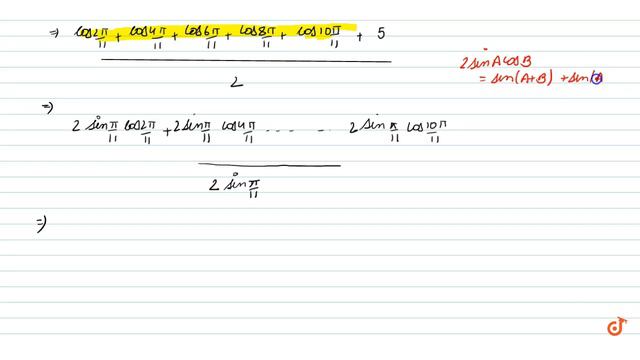 ⇒ cos 2π/11 + cos 4π/11 + cos 6π/11 + cos 8π/11 + cos 10π/11 + 5
2
2 sin A cos B
= sin(A+B) + sin(A
⇒
2 sin π/11 cos 2π/11 + 2 sin π/11 cos 4π/11 - - - - - - - - 2 sin π/11 cos 10π/11
2 sin π/11
⇒